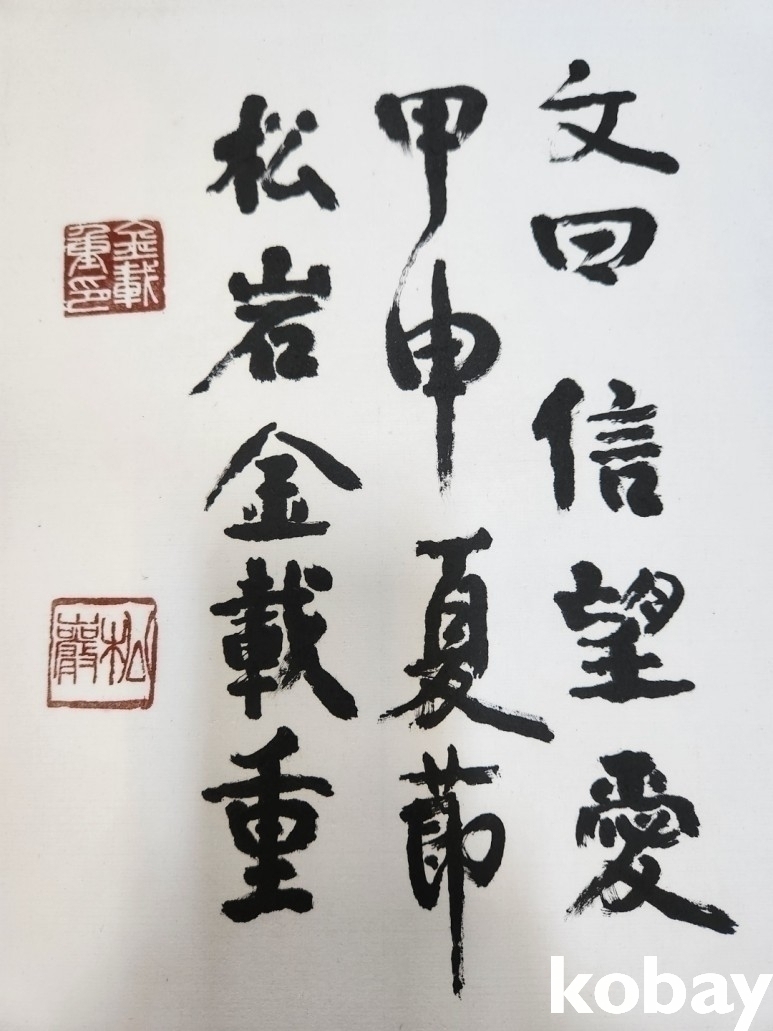 文曰 信望愛
甲申夏節
松岩金載重
金載重印
松巖
kobay